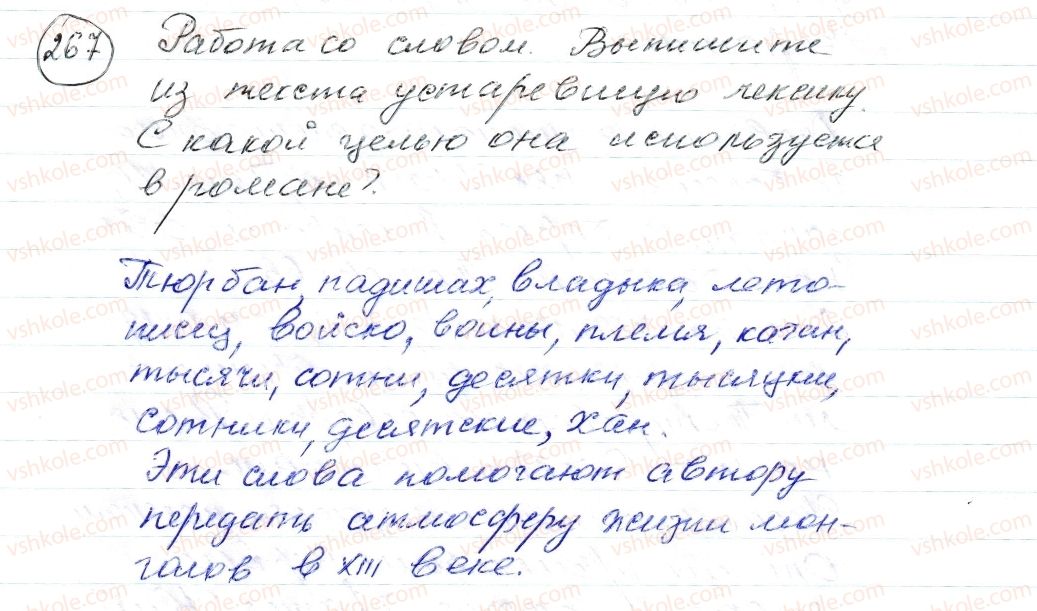 267 Работа со словом. Выпишите
из текста устаревшую лексику.
С какой целью она используется
в романе?
Тюрбан, падишах, владыка, лето-
писец, войско, воины, племя, катан,
тысячи, сотни, десятки, тысяцкие,
сотники, десятские, хан.
Эти слова помогают автору
передать атмосферу жизни мон-
голов в XIII веке.